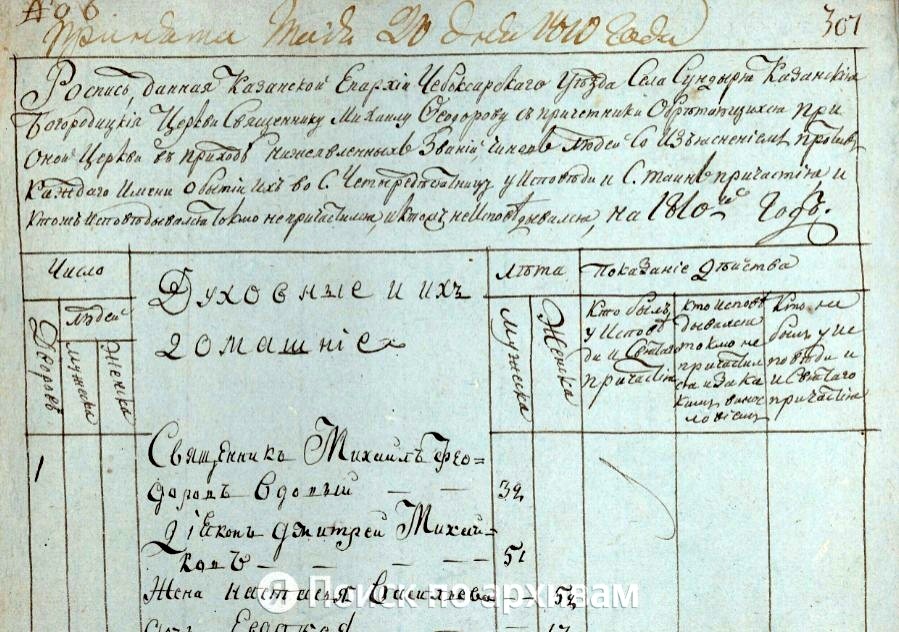 № 96
Принята Майя 20 дня 1810 Года
307
Роспись, данная Казанской Епархїи Чебоксарскаго Уѣзда Села Сундыря Казанскїя
Богородицкїя Церкви Священнику Михаилу Феодорову съ причетники Обрѣтающихся при
Оной Церкви въ приходѣ нижеявленныхъ Званїй, чиновъ людей Со Изъясненїемъ, противъ
Каждаго Имени о бытїи ихъ во С. Четыредесятницу у исповѣди и С. таинъ причастїя и
Кто жъ исповѣдывался токмо не причастился, и кто жъ не исповѣдывался, на 1810й Годъ.
Число
Людей
Дворовъ
Мужеска
Женска
Духовные и ихъ
домашнїе
Лѣта
Мужеска
Женска
Показанїе дѣйства
Кто былъ
у исповѣ
ди и Святаго
причастїя
Кто исповѣ
дывался
токмо не
причастил
ся и за ка
кимъ винос
ловїемъ
Кто не
былъ у ис
повѣди и
и Святаго
причастїя
1
Священникъ Михаилъ Фео-
доровъ вдовый — — 32
Дїяконъ Дмитрей Михай-
ловъ — — — — 51
Жена Настасья Васильева — 52
Евдокия
Поиск по архивам